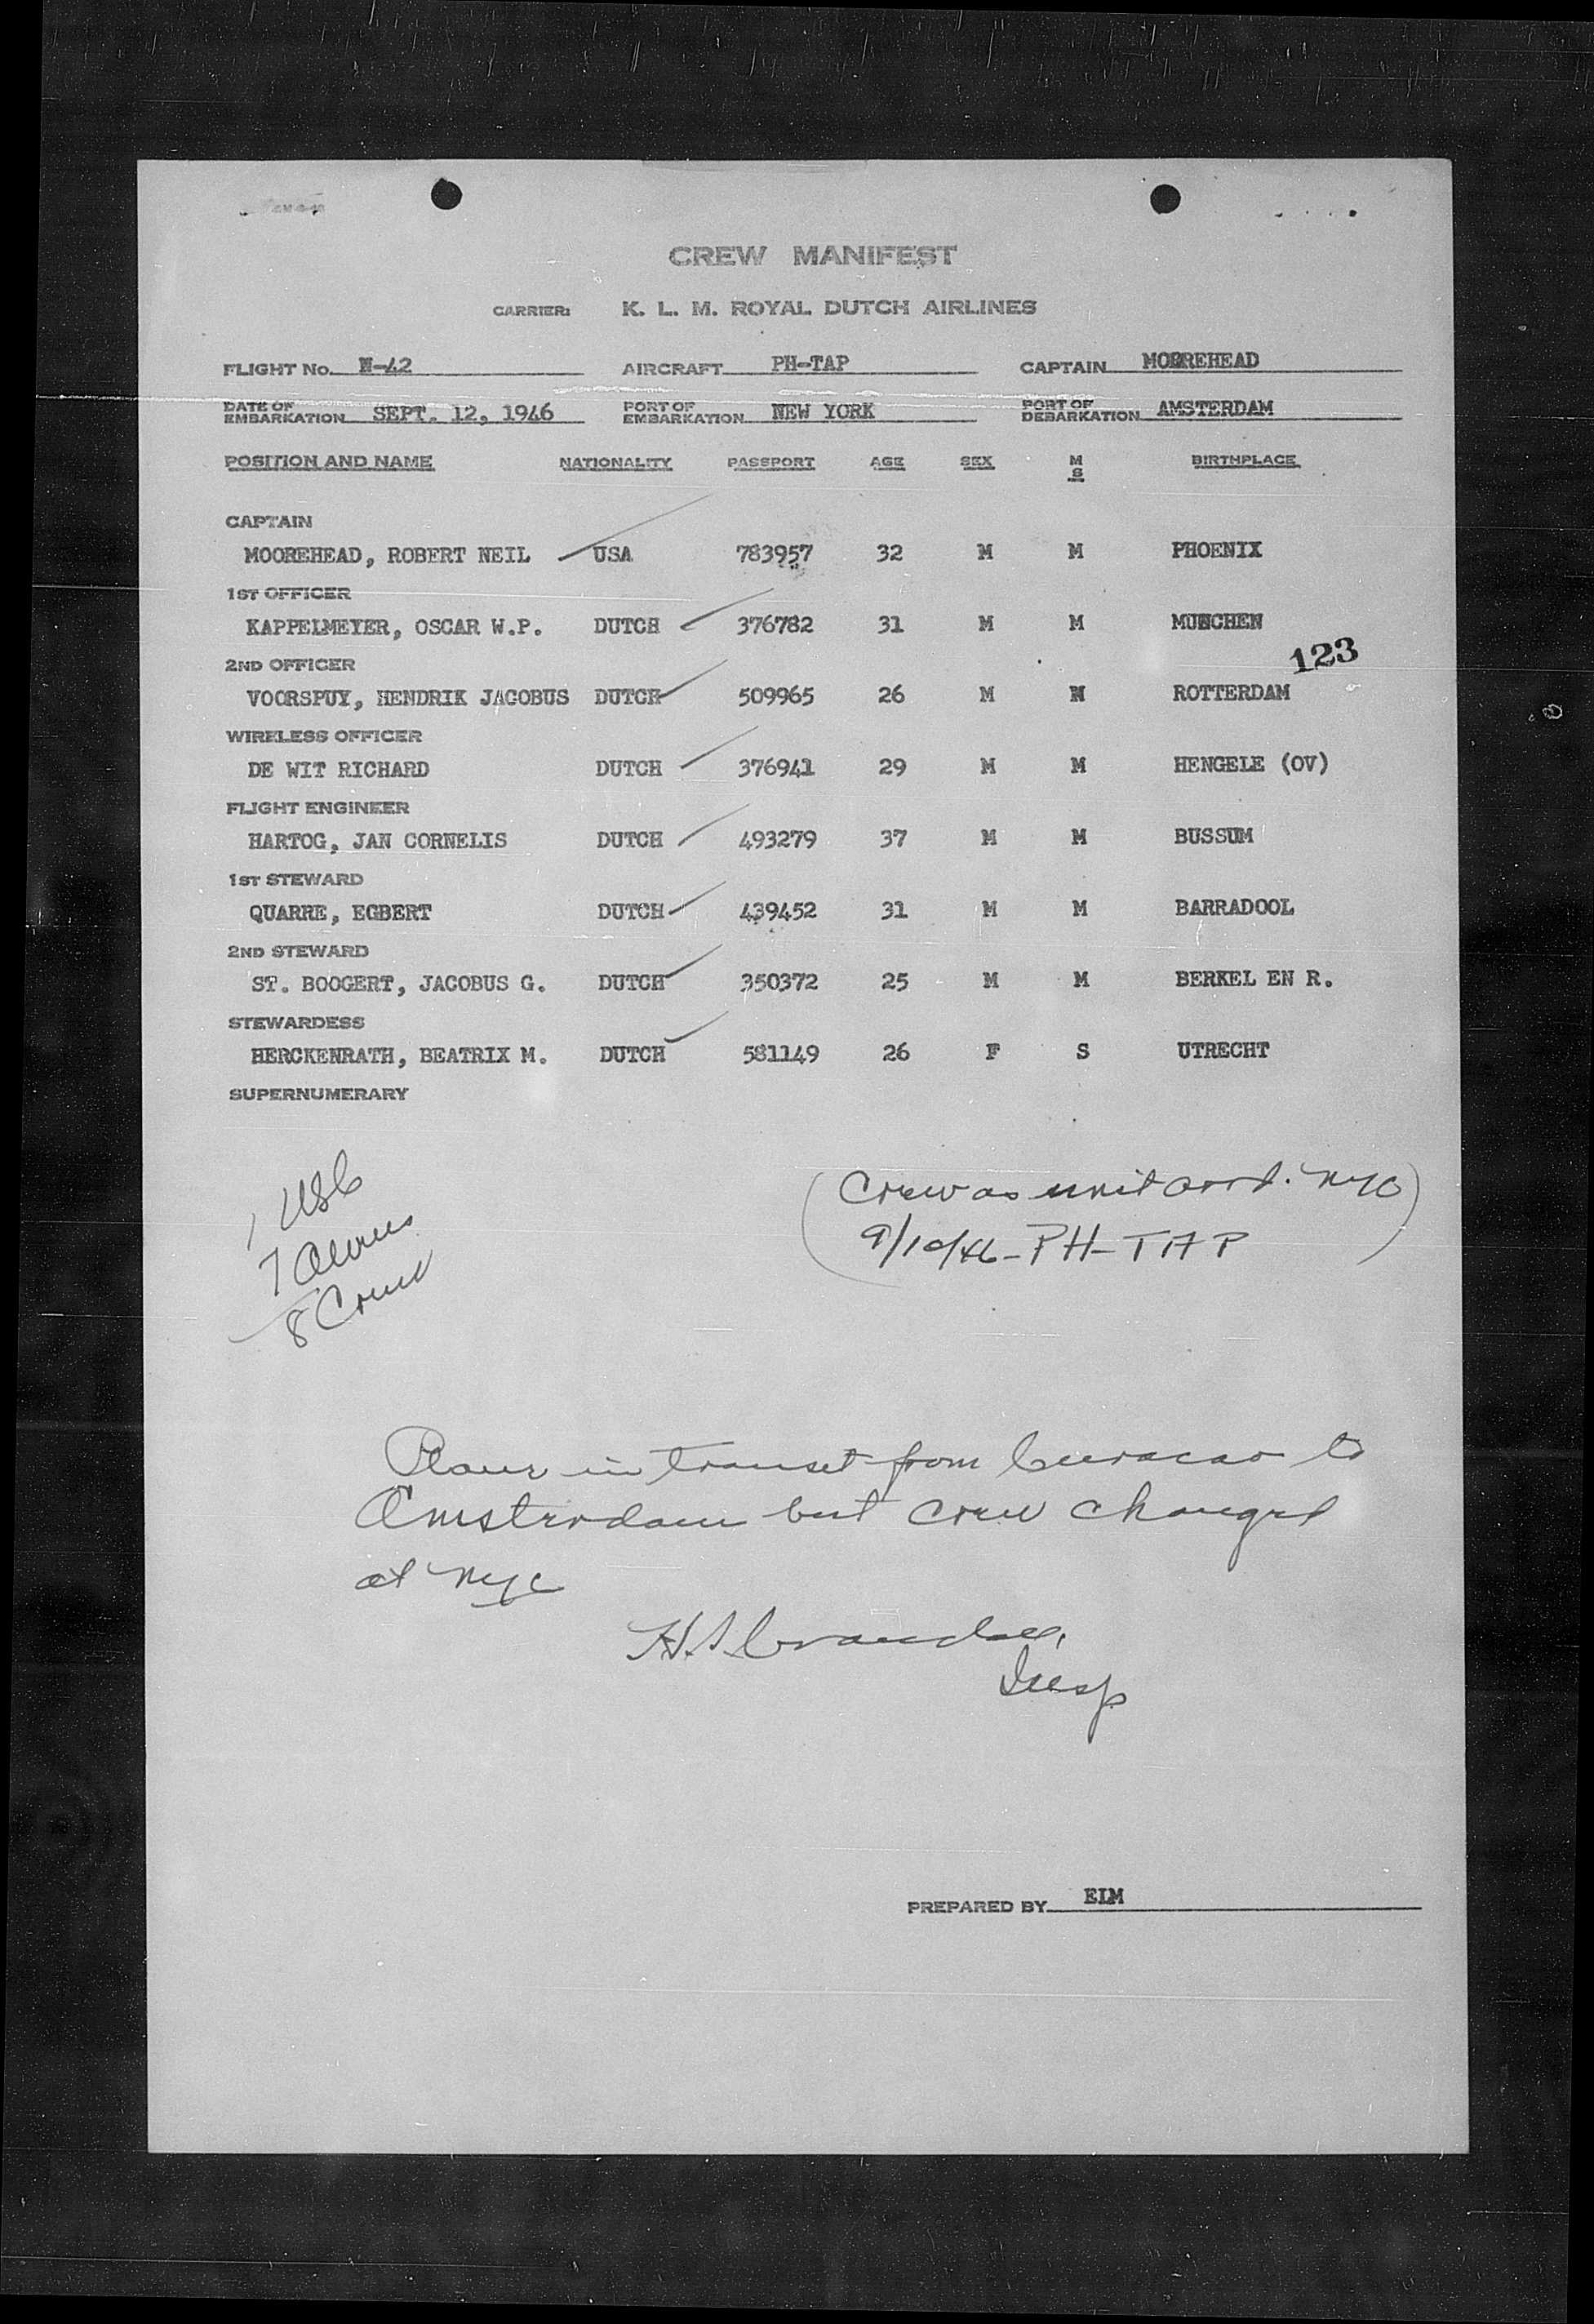 CREW MANIFEST
CARRIER: K. L. M. ROYAL DUTCH AIRLINES
FLIGHT No. N-42 AIRCRAFT PH-TAP CAPTAIN MOOREHEAD
DATE OF EMBARKATION SEPT. 12, 1946 PORT OF EMBARKATION NEW YORK PORT OF DEBARKATION AMSTERDAM
POSITION AND NAME NATIONALITY PASSPORT AGE SEX M S BIRTHPLACE
CAPTAIN
MOOREHEAD, ROBERT NEIL USA 783957 32 M M PHOENIX
1ST OFFICER
KAPPELMEYER, OSCAR W.P. DUTCH 376782 31 M M MUNCHEN
123
2ND OFFICER
VOORSPUY, HENDRIK JACOBUS DUTCH 509965 26 M M ROTTERDAM
WIRELESS OFFICER
DE WIT RICHARD DUTCH 376941 29 M M HENGELE (OV)
FLIGHT ENGINEER
HARTOG, JAN CORNELIS DUTCH 493279 37 M M BUSSUM
1ST STEWARD
QUARRE, EGBERT DUTCH 439452 31 M M BARRADOOL
2ND STEWARD
ST. BOOGERT, JACOBUS G. DUTCH 350372 25 M M BERKEL EN R.
STEWARDESS
HERCKENRATH, BEATRIX M. DUTCH 581149 26 F S UTRECHT
SUPERNUMERARY
1 USC
7 Aliens
8 Crew
(Crew as unit arrd. NYC
9/10/46 - PH-TAP)
Plane in transet from Curacao to
Amsterdam but crew changed
at NYC
Insp
PREPARED BY ELM